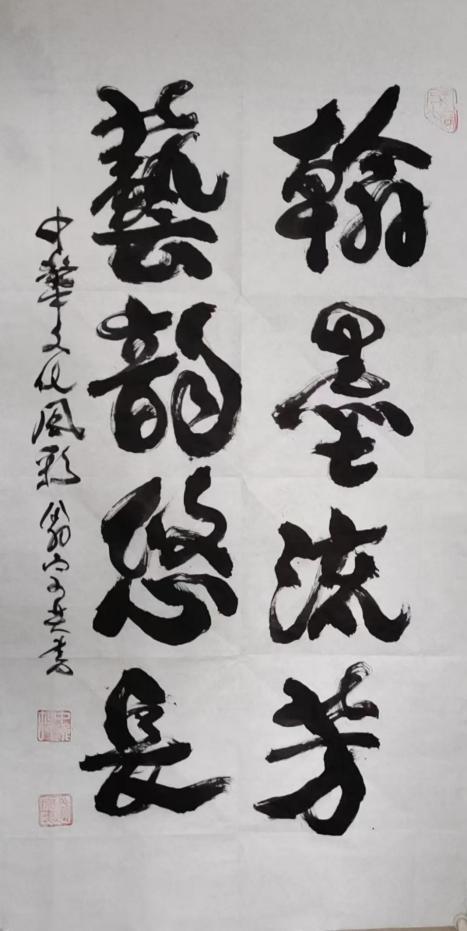 翰墨流芳
藝韵悠长
中華文化風彩